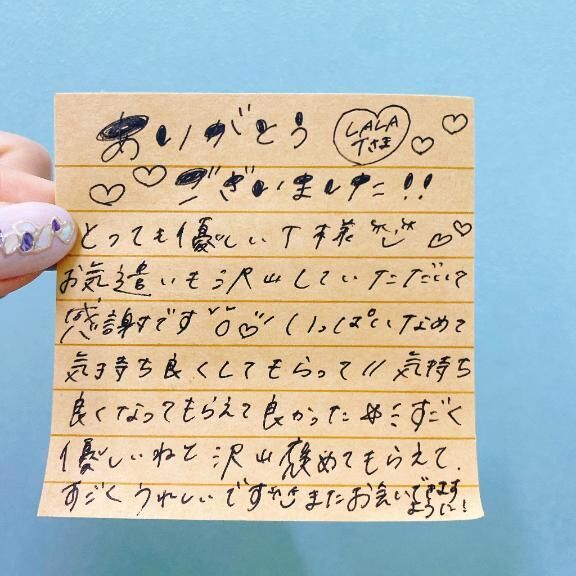 ありがとう LALA Tさま
ございました!!
とっても優しいT様
お気遣いも沢山していただいて
感謝です いっぱいなめて
気持ち良くしてもらって// 気持ち
良くなってもらえて良かった すごく
優しいねと沢山褒めてもらえて、
すごくうれしいです またお会いできます
ように!